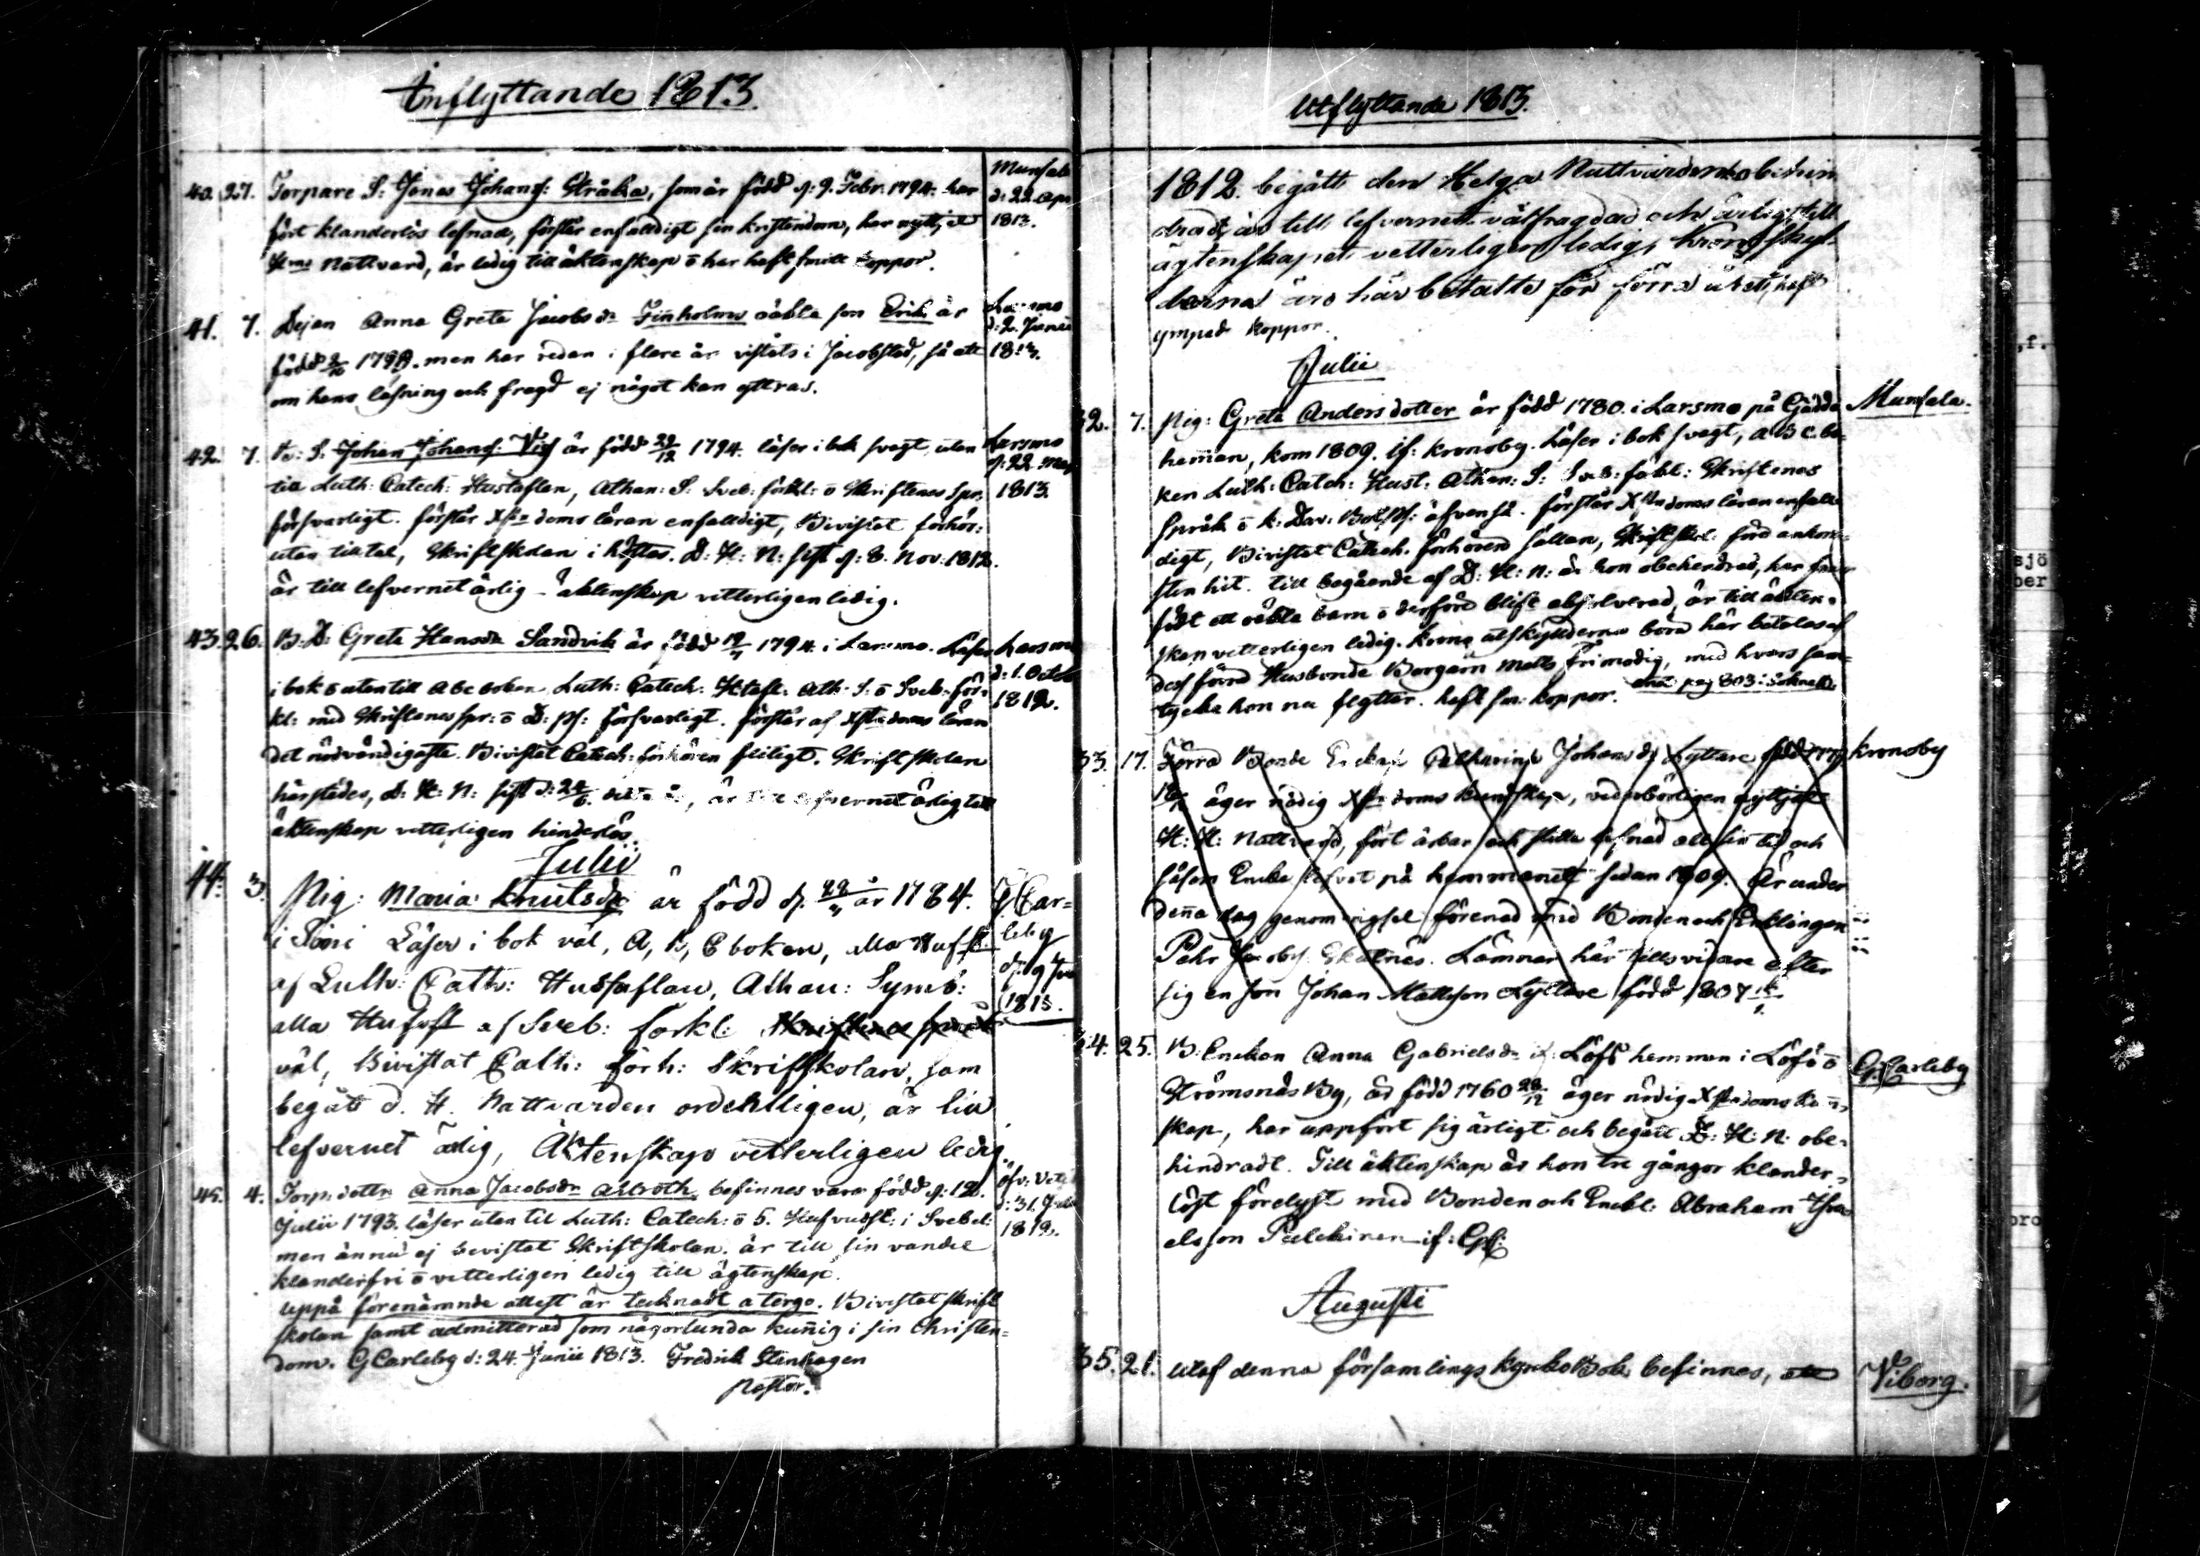 Inflyttande 1813.
40. 27. Torpare S: Jonas Johans: Stråka, som är född d: 9. Febr. 1794. har
fört klanderlös lefnad, förstår enfalldigt sin kristendom, har nyttjat
Nattvard, är ledig till äktenskap ō har haft koppor.
Munsala
d: 22. Apr
1813.
41. 7. Dejan Anna Greta Jacobs dr Finholms oäkta son Erik är
född 179 men har redan i flere år vistats i Jacobstad, så att
om hans läsning och fregd ej något kan yttras.
Larsmo
d: 2. Junii
1813.
42. 7. S. Johan Johans: är född 29/12 1794. läser i bok svagt, utan
till Luth: Catech: Hustaflan, Athan: S: Sveb: förkl: ō Skriftenes Spr.
försvarligt. förstår Xstendoms läran enfalldigt, Bivistat förhör:
utan tilltal, Skriftskolan i höstas. D: H: N: sist d: 8. Nov. 1812.
är till lefvernet ärlig - äktenskap vetterligen ledig.
Larsmo
d: 22 May
1813.
43. 26. B. D: Greta Hansdr Sandvik är född 19/7 1794. i Larsmo. Läser
i bok ō utan till Abc boken, Luth: Catech: Htafl: Ath: S: ō Sveb: för-
kl: med Skriftenes spr: ō D: Ps: försvarligt. förstår af Xstendoms läran
det nödvändigaste. Bivistat Catech: förhören fliligt. Skriftskolan
härstädes, D: H: N: sist d: är till lefvernet ärlig, till
äktenskap vetterligen hinderlös.
Larsmo
d: 1. Octob
1812.
Julii
44. 3. Pig: Maria Knutsdr är född d. år 1784.
i Läser i bok väl, A, B, C boken, alla Hufst
af Luth: Cath: Hustaflan, Athan: Symb:
alla Hufvst af Sveb: förkl: Skriftenes språk
väl, Bivistat Cath: förh: Skriftskolan, sam
begått d. H. Nattvarden ordentligen, är till
lefvernet ärlig, Äktenskap vetterligen ledig
G Car=
leby
d. 9 Jun
1813.
45. 4. Torp: dottr Anna Jacobsdr Allroth, befinnes vara född d: 12.
Julii 1793. läser utan til Luth: Catech: ō 5. Hufvudst: i Svebel:
men ännu ej bevistat Skriftskolan. är till sin vandel
klanderfri ō vetterligen ledig till ägtenskap.
Uppå förenämnde attest är tecknadt a tergo. Bivistat skrift
skolan samt admitterad som någorlunda kunnig i sin Christen=
dom. GCarleby d: 24. Junii 1813. Fredrik Stenhagen
Pastor.
d: 31. 
1812.
Utflyttande 1813.
1812. begått den Helga Nattvarden obehin
dradt, är till lefvernet välfrägdad och ärlig, till
ägtenskapet vetterligen ledig, Kronoskyl-
derna äro här betalte för förra året, haft
ympad koppor.
Julii
32. 7. Pig: Greta Anders dotter är född 1780. i Larsmo på Gädda
hemman, kom 1809. if: Kronoby. Läser i bok svagt, ABC bo-
ken Luth: Catch: Hust. Athan: S: Sveb: förkl: Skriftenes
Språk ō k: Dav: Bot Ps: äfven så. förstår Xstendoms läran enfall
digt, Bivistat Catech. förhören sällan, förr ankom-
sten hit. till begående af D: H: N: är hon obehindrad, har
födt ett oäkta barn ō derföre blifvit absolverad, är till äkten-
skap vetterligen ledig. Krono utskylderna böra här betalas af
dess förra Husbonde Borgarn Matts Frimodig, med hvars sam-
tycke hon nu flyttar. haft koppor.
Munsala.
33. 17. Förra Bonde Enckan Catharina Johansdr Lyttare född
äger nödig Xstendoms kundskap, vederbörligen nyttjat
H: H: Nattvard, fört ärbar och stilla lefnad all sin tid och
såsom Encka lefvat på hemmanet sedan 1809. Är under
denna dag genom vigsel förenad med Bonden och Enklingen
Pehr Jacobs. Skatnäs. Lämnar här tills vidare efter
sig en son Johan Mattsson Lyttare född 1807
Kronoby
34. 25. B. Enckan Anna Gabrielsdr if: Löfs hemman i Löfö ō
Strömsnäs By, är född 1760 28/12 äger nödig Xstendoms kun-
skap, har uppfört sig ärligt och begått D: H: N: obe-
hindradt. Till äktenskap är hon tre gångor klander-
löst förelyst med Bonden och Enckl: Abraham Thom
elsson Palckinen if: GC:
G. Carleby
Augusti
35. 21. Utaf denna församlings kyrko Bok befinnes, att
Viborg.